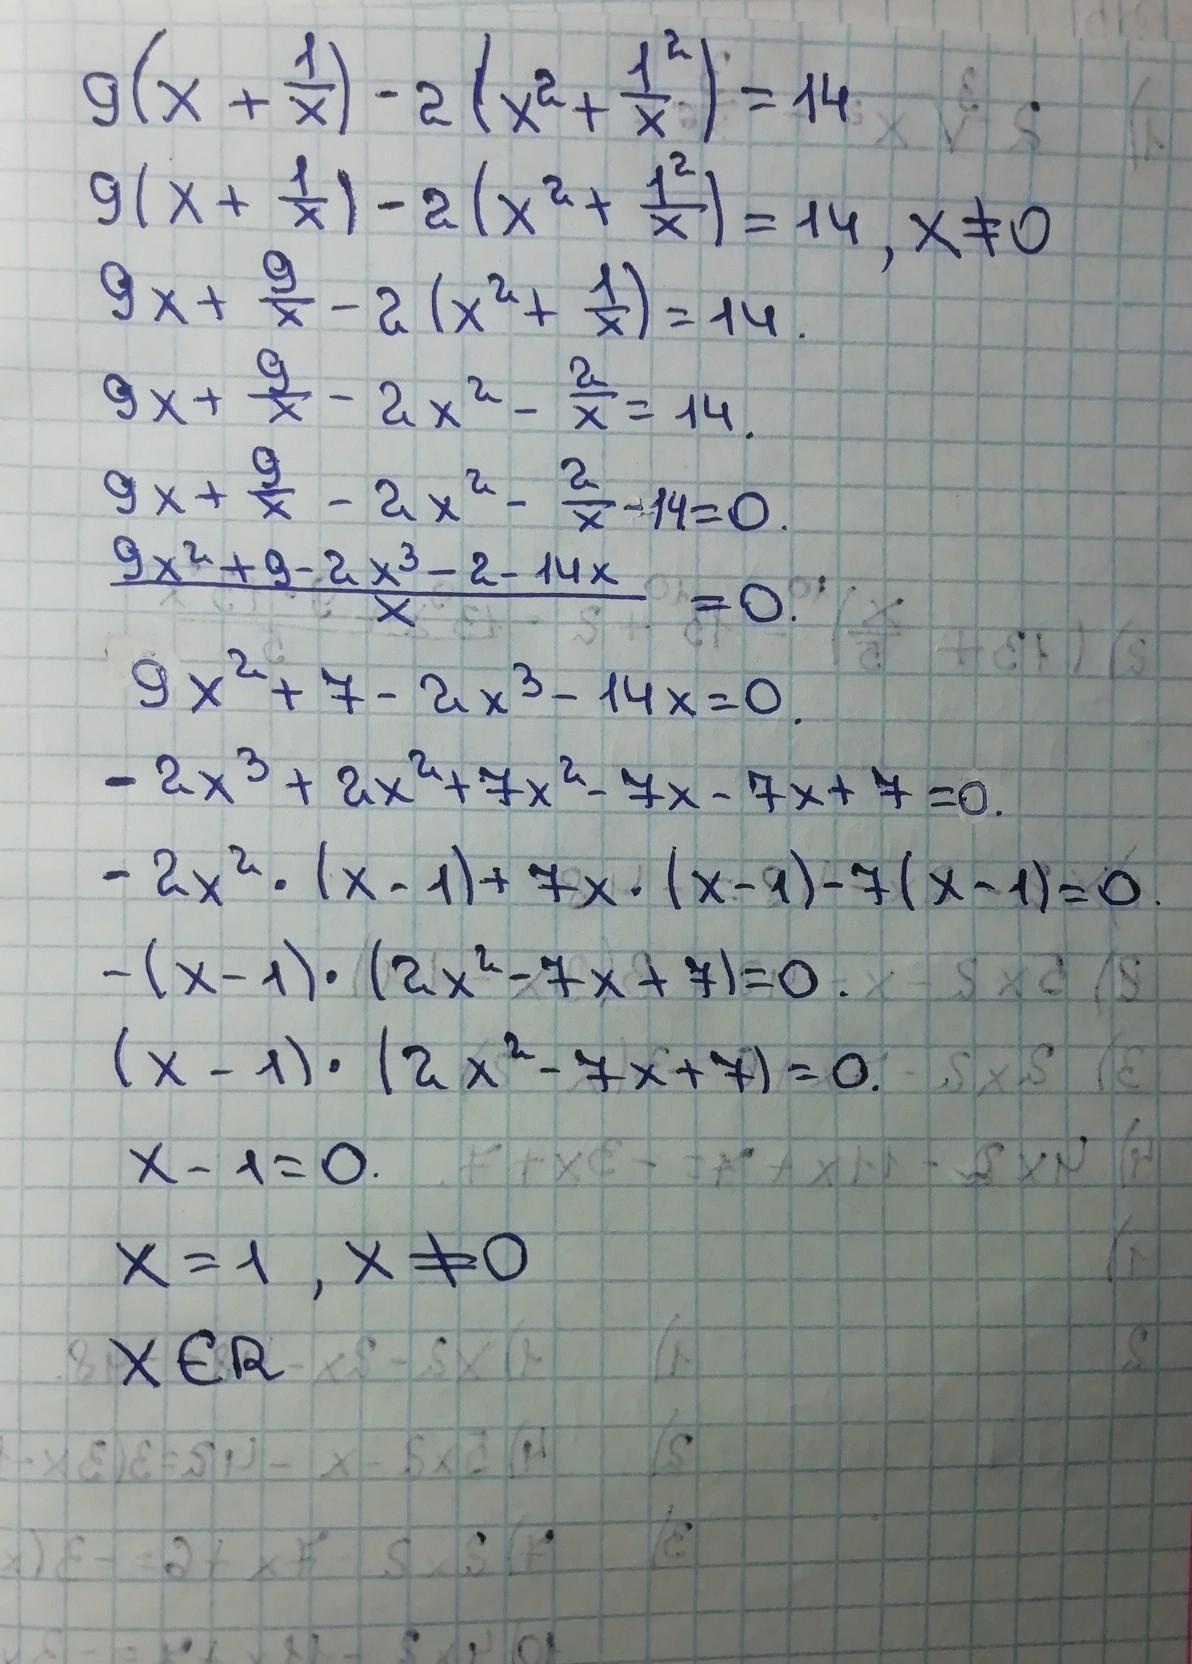 9(x + 1/x) - 2(x² + 1²/x) = 14
9(x + 1/x) - 2(x² + 1²/x) = 14, x ≠ 0
9x + 9/x - 2(x² + 1/x) = 14.
9x + 9/x - 2x² - 2/x = 14.
9x + 9/x - 2x² - 2/x - 14 = 0.
(9x² + 9 - 2x³ - 2 - 14x)/x = 0.
9x² + 7 - 2x³ - 14x = 0.
- 2x³ + 2x² + 7x² - 7x - 7x + 7 = 0.
- 2x² · (x - 1) + 7x · (x - 1) - 7(x - 1) = 0.
-(x - 1) · (2x² - 7x + 7) = 0.
(x - 1) · (2x² - 7x + 7) = 0.
x - 1 = 0.
x = 1, x ≠ 0
x ∈ R